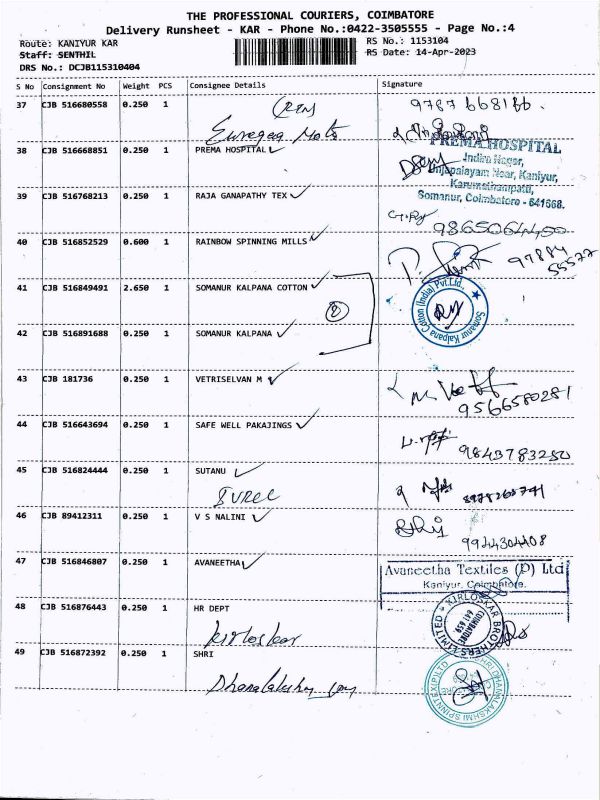 THE PROFESSIONAL COURIERS, COIMBATORE
Delivery Runsheet - KAR - Phone No.:0422-3505555 - Page No.:4
Route: KANIYUR KAR RS No.: 1153104
Staff: SENTHIL RS Date: 14-Apr-2023
DRS No.: DCJB115310404
S No Consignment No Weight PCS Consignee Details Signature
37 CJB 516680558 0.250 1
38 CJB 516668851 0.250 1 PREMA HOSPITAL
PREMA HOSPITAL
Indira Nagar,
Kaniyur,
Karumathampatti,
Somanur, Coimbatore - 641668.
39 CJB 516768213 0.250 1 RAJA GANAPATHY TEX
9865064450
40 CJB 516852529 0.600 1 RAINBOW SPINNING MILLS
97884
55577
41 CJB 516849491 2.650 1 SOMANUR KALPANA COTTON
Somanur Kalpana Cotton (India) Pvt.Ltd.,
2
42 CJB 516891688 0.250 1 SOMANUR KALPANA
43 CJB 181736 0.250 1 VETRISELVAN M
9566580281
44 CJB 516643694 0.250 1 SAFE WELL PAKAJINGS
9843783250
45 CJB 516824444 0.250 1 SUTANU
46 CJB 89412311 0.250 1 V S NALINI
9944304408
47 CJB 516846807 0.250 1 AVANEETHA
Avaneetha Textiles (P) Ltd
Kaniyur, Coimbatore.
48 CJB 516876443 0.250 1 HR DEPT
Kirloskar
KIRLOSKAR BROTHERS LIMITED
COIMBATORE
641 659
49 CJB 516872392 0.250 1 SHRI